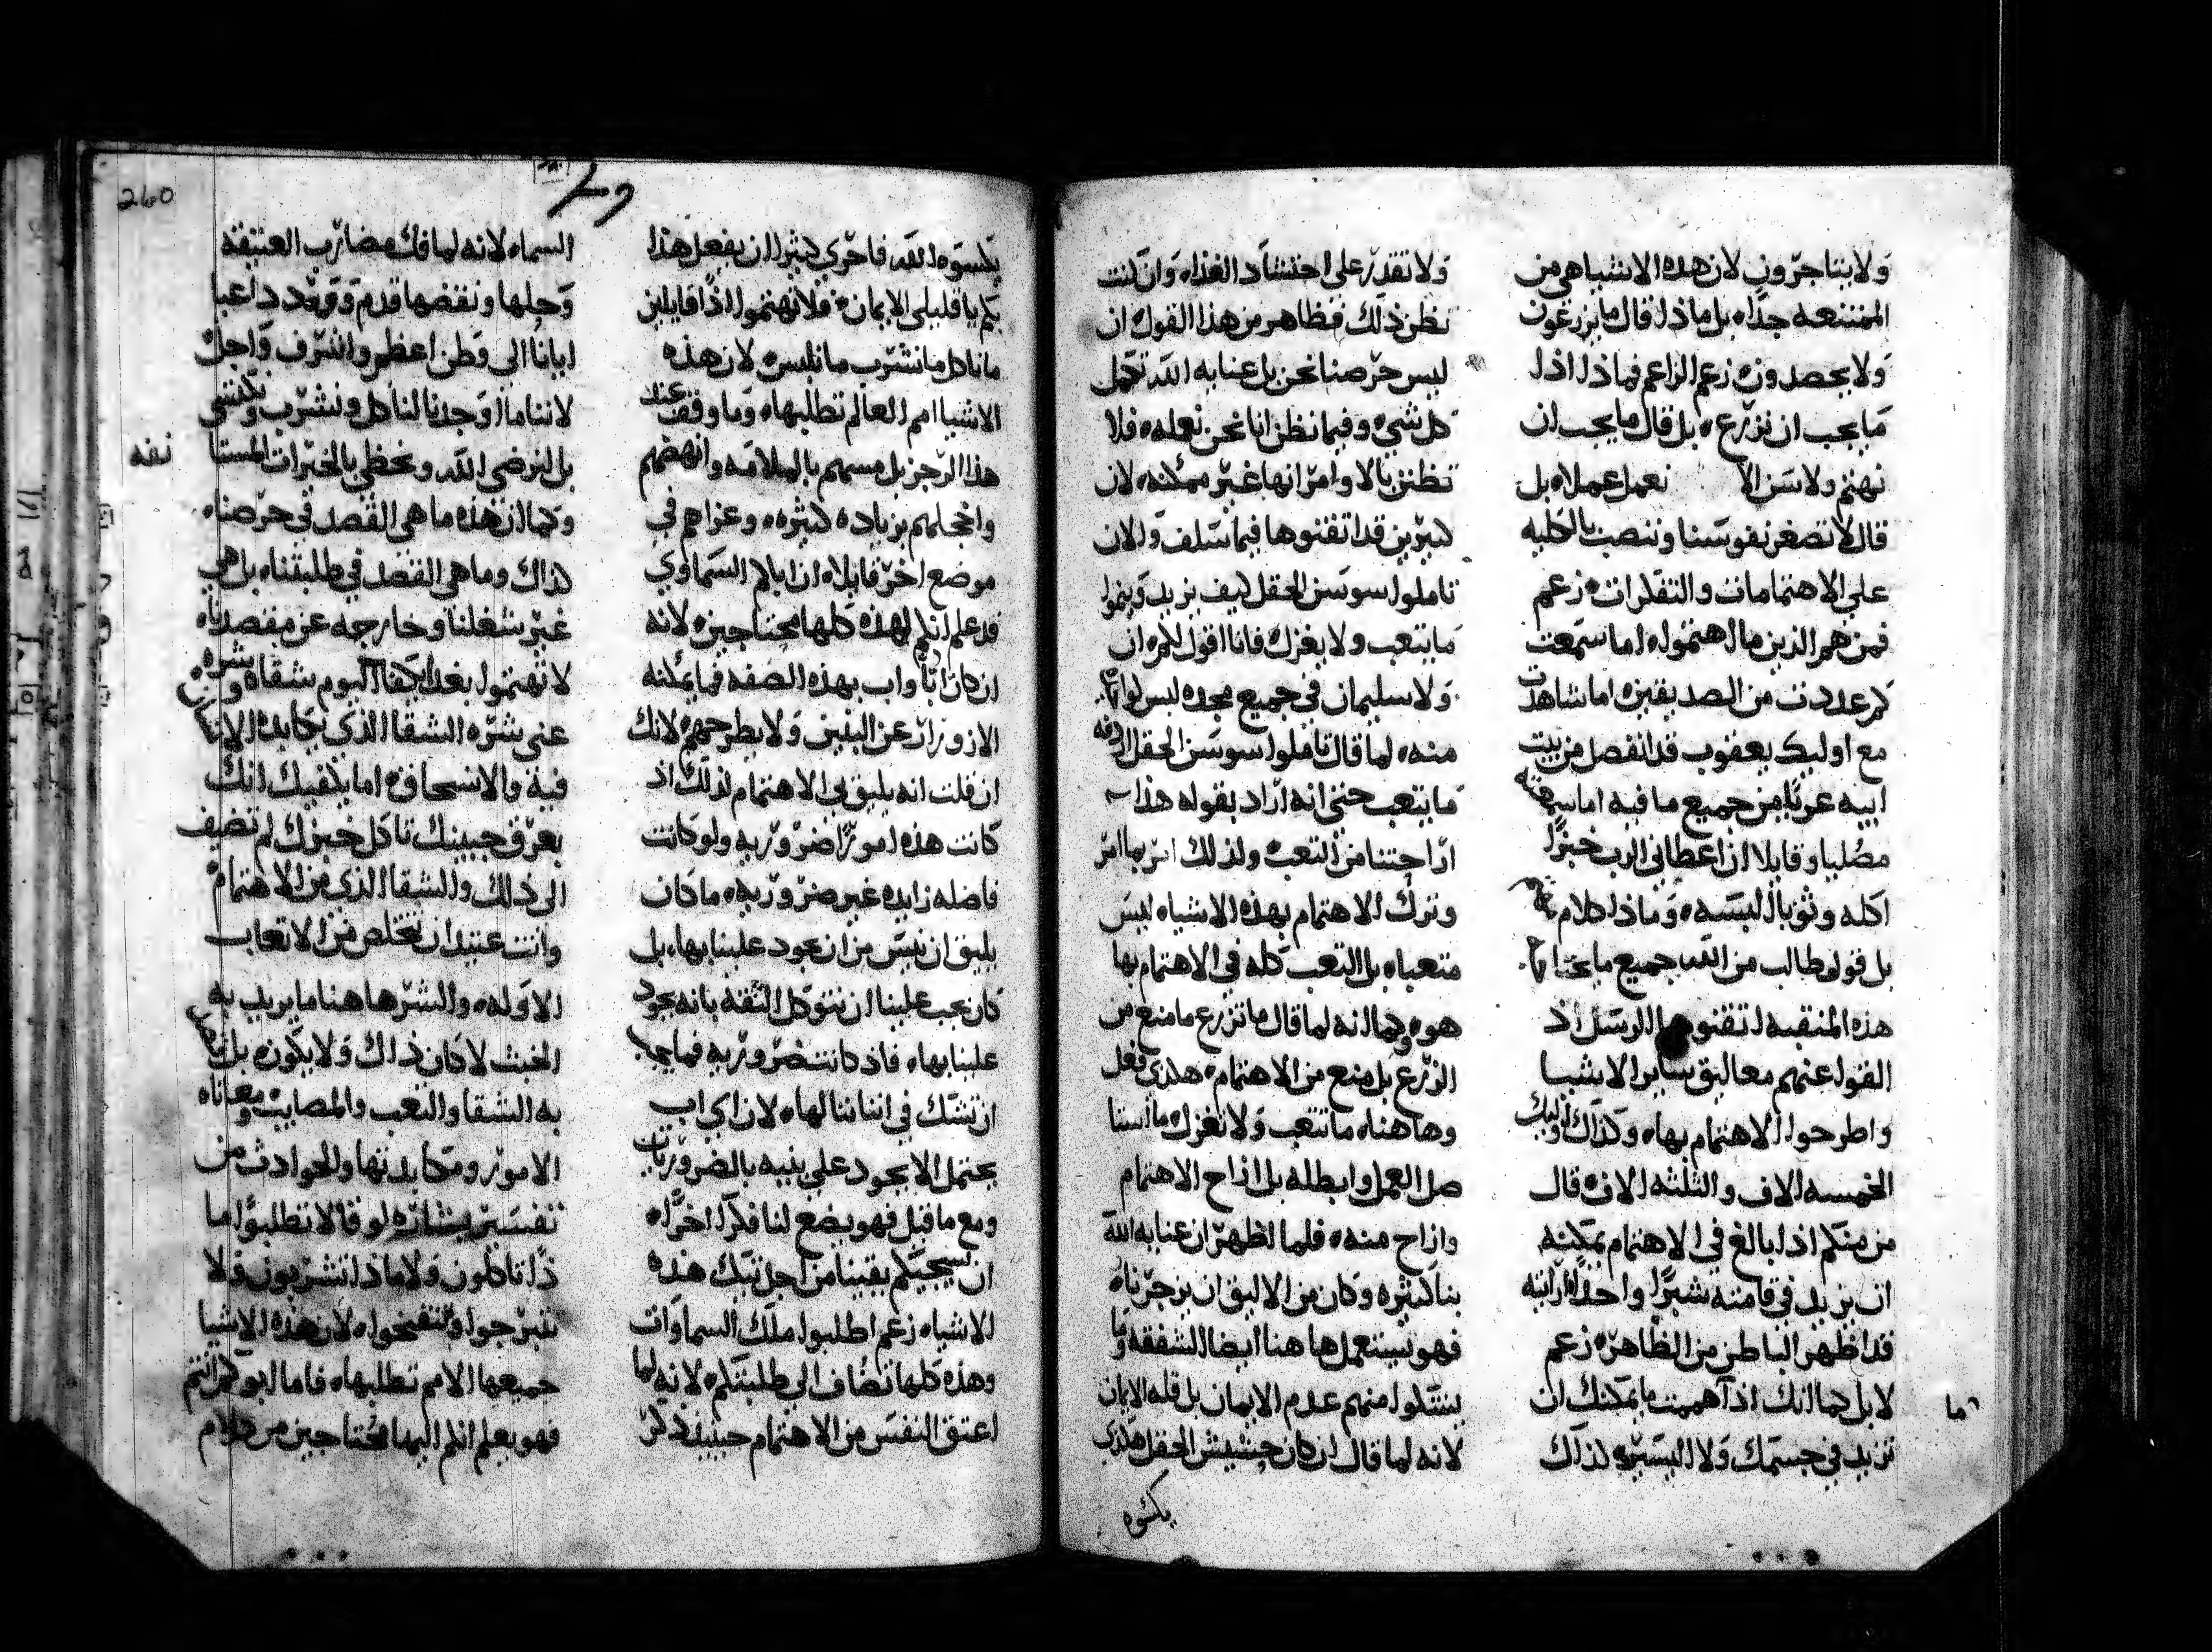 ولا يتاجرون لان هذه الاشيا هي من
الممتنعه جدا بل ماذا قال ما يزرعون
ولا يحصدون زعم الزاعم فماذا اذا
ما يجب ان نزرع بل قال ما يجب ان
نهتم ولا سن الا نعمل عملا بل
قال لا تصغر نفوسنا وننصب بالكليه
على الاهتمامات والتفكرات زعم
فمن هم الذين ما اهتموا اما سمعت
كم عددت من الصديقين اما شاهدت
مع اوليك يعقوب قد انفصل من بيت
ابيه عريا من جميع ما فيه اما سمعته
مصليا وقايلا ان اعطاني الرب خبزا
اكله وثوبا البسه وماذا كلام
بل قول طالب من الله جميع ما يحتاج
هذه المنقبه اتقنوها الرسل اذ
القوا عنهم معاليق ساير الاشيا
واطرحوا الاهتمام بها وكذاك اوليك
الخمسه الاف والثلثه الاف قال
من منكم اذا بالغ في الاهتمام يمكنه
ان يزيد في قامته شبرا واحدا ارايته
قد اظهر الباطن من الظاهر زعم
لا بل كما انك اذا اهممت ما يمكنك ان
تزيد في جسمك ولا اليسير كذاك
ما
ولا تقدر على احتشاد الغذاء وان كنت
تظن ذلك فظاهر من هذا القول ان
ليس حرصنا نحن بل عنايه الله تكمل
كل شي وفيما نظن انا نحن نعمله فلا
تظنن بالاوامر انها غير ممكنه لان
كثيرين قد اتقنوها فيما سلف والان
تاملوا سوسن الحقل كيف يزيد وينمو
ما يتعب ولا يغزل فانا اقول لكم ان
ولا سليمان في جميع مجده لبس
منه لما قال تاملوا سوسن الحقل
ما يتعب حتى انه اراد بقوله هذا
اراحتنا من التعب ولذلك امر بما امر
وترك الاهتمام بهذه الاشياء ليس
متعبا بل التعب كله في الاهتمام بها
هو وكما انه لما قال ما تزرع ما منع من
الزرع بل منع من الاهتمام هكذى فعل
وهاهنا ما تتعب ولا تغزل ما استا
صل العمل وابطله بل ازاح الاهتمام
وازاح منه فلما اظهر ان عنايه الله
بنا كثيره وكان من الاليق ان يزجرنا
فهو يستعمل هاهنا ايضا الشفقه وما
يستكوا منهم عدم الايمان بل قله الايمان
لانه لما قال ان كان حشيش الحقل هكذى
يكسوه
260
يكسوه الله فاحري كثيرا ان يفعل هذا
بكم يا قليلى الايمان فلا تهتموا اذا قايلين
ماناكل ما نشرب ما نلبس لان هذه
الاشيا امم العالم تطلبها وما وقف عند
هذا الزجر بل مسهم بالملامه وانهضهم
واخجلهم بزياده كثيره وعزاهم في
موضع اخر قايلا ان اباكم السماوي
قد علم انكم لهذه كلها محتاجين لانه
ان كان ابا واب بهذه الصفه فما يمكنه
الازورار عن البنين ولا يطرحهم لانك
ان قلت انه يليق بي الاهتمام لذلك اذ
كانت هذه امورا ضروريه ولو كانت
فاضله زايده غير ضروريه ما كان
يليق ان نيس من ان يجود علينا بها، بل
كان يجب علينا ان نتوكل الثقه بانه يجود
علينا بها فاذ كانت ضروريه فما يجب
ان تشك في اتاننا لها لان اي اب
يحتمل الا يجود على بنيه بالضروريات
ومع ما قبل فهو يضع لنا فكرا اخرا
ان نسيحيكم يقينا من اجل تيك هذه
الاشياء زعم اطلبوا ملك السماوات
وهذه كلها تضاف الي طلبتكم لانه لما
اعتق النفس من الاهتمام حينيذ ذكر
السماء لانه لما فك مضارب العتيقه
وحلها ونقضها قدم ووعد داعيا
ايانا الى وطن اعظم واشرف واجل
لاننا ما اوجدنا لناكل ونشرب ونكتسي
بل لنرضي الله ونحظى بالخيرات المستا
نفه
وكما ان هذه ما هي القصد في حرصنا
كذاك وما هي القصد في طلبتنا بل هي
غير شغلنا وخارجه عن مقصدنا
لا تهتموا بغد يكفا اليوم شقاه وشره
عنى بشره الشقا الذي يكابده الانسان
فيه والانسحاق اما يكفيك انك
بعرق جبينك تاكل خبزك لم تضيف
الى ذلك والشقا الذي من الاهتمام
وانت عتيد ان تتخلص من الاتعاب
الاوله والشر هاهنا ما يريد به
الخبث لا كان ذلك ولا يكون بل
به الشقا والتعب والمصايب ومعاناه
الامور ومكابدتها والحوادث من
تفسير بشاره لوقا لا تطلبوا ما
ذا تاكلون ولا ماذا تشربون ولا
تتبرجوا وتنفخوا لان هذه الاشيا
جميعها الامم تطلبها فاما ابوكم انتم
فهو يعلم انكم اليها محتاجين من كلام